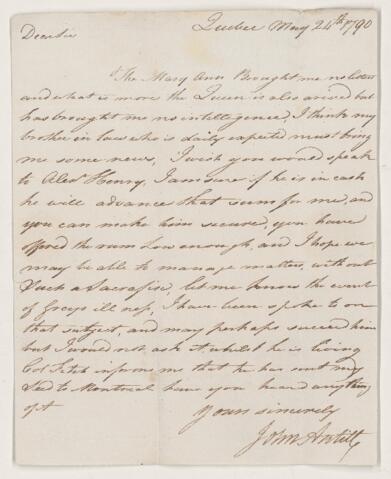 Quebec May 24th 1790
Dear Sir
The Mary Ann Brought me no letters
and what is more the Queen is also arived but
has brought me no intelligence, I think my
brother in law who is daily expected must bring
me some news, I wish you would speak
to Alexr Henry, I am sure if he is in cash
he will advance that sum for me, and
you can make him secure, you have
offered the rum low enough, and I hope we
may be able to manage matters, without
Such a Sacrafise, let me know the event
of Greys ill ness, I have been spoke to on
that subject, and may perhaps succeed him
but I would not ask it whilst he is living
Col informs me that he has sent my
to Montreal have you heard anything
of it
Yours sincerely
John Antill